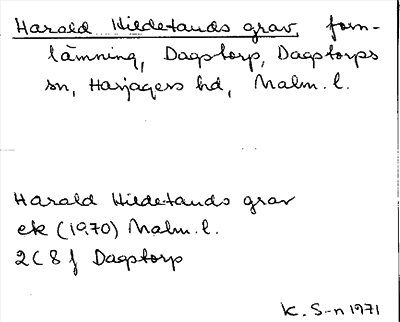 Harald Hildetands grav, forn-
lämning, Dagstorp, Dagstorps
sn, Harjagers hd, Malm. l.
Harald Hildetands grav
ek (1970) Malm. l.
2C 8f Dagstorp
K. S-n 1971